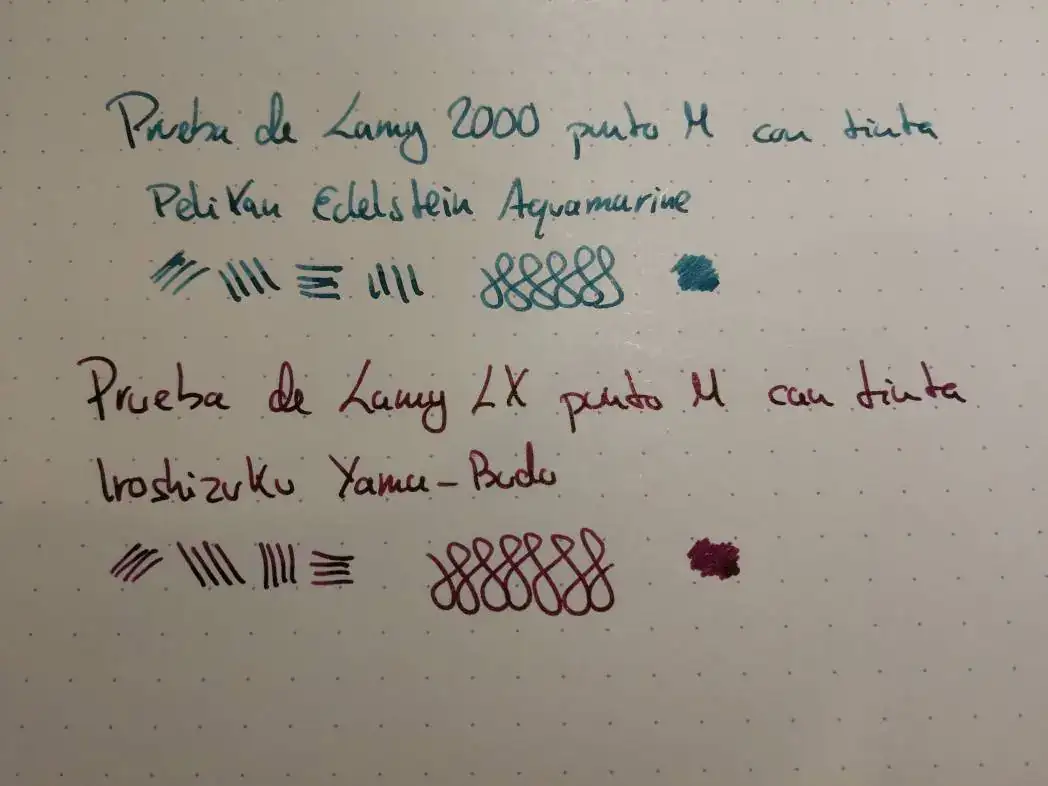 Prueba de Lamy 2000 punto M con tinta
Pelikan Edelstein Aquamarine
Prueba de Lamy LX punto M con tinta
Iroshizuku Yama-Budo